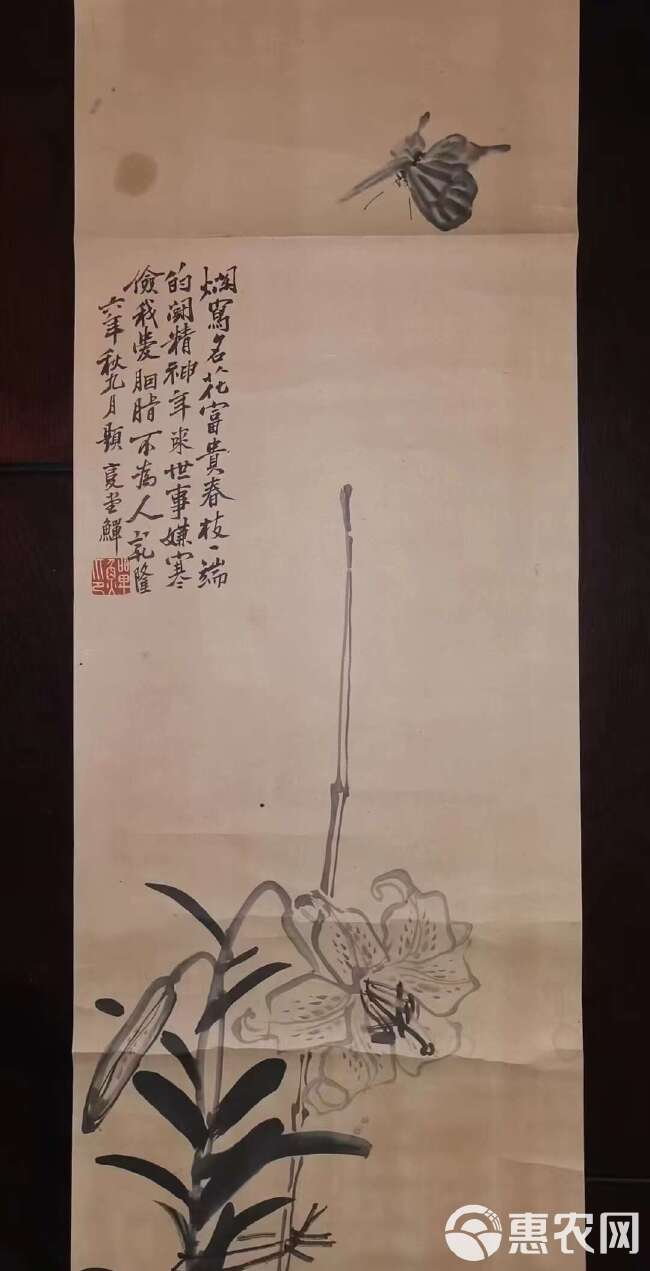 爛寫名花富貴春枝々端
的鬭精神年来世事嫌寒
儉我愛胭脂不為人乾隆
六年秋九月題复堂鱓
惠农网